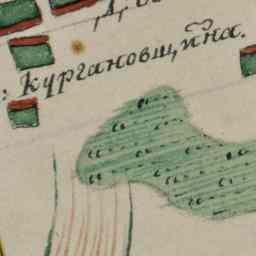 : Кургановщина.